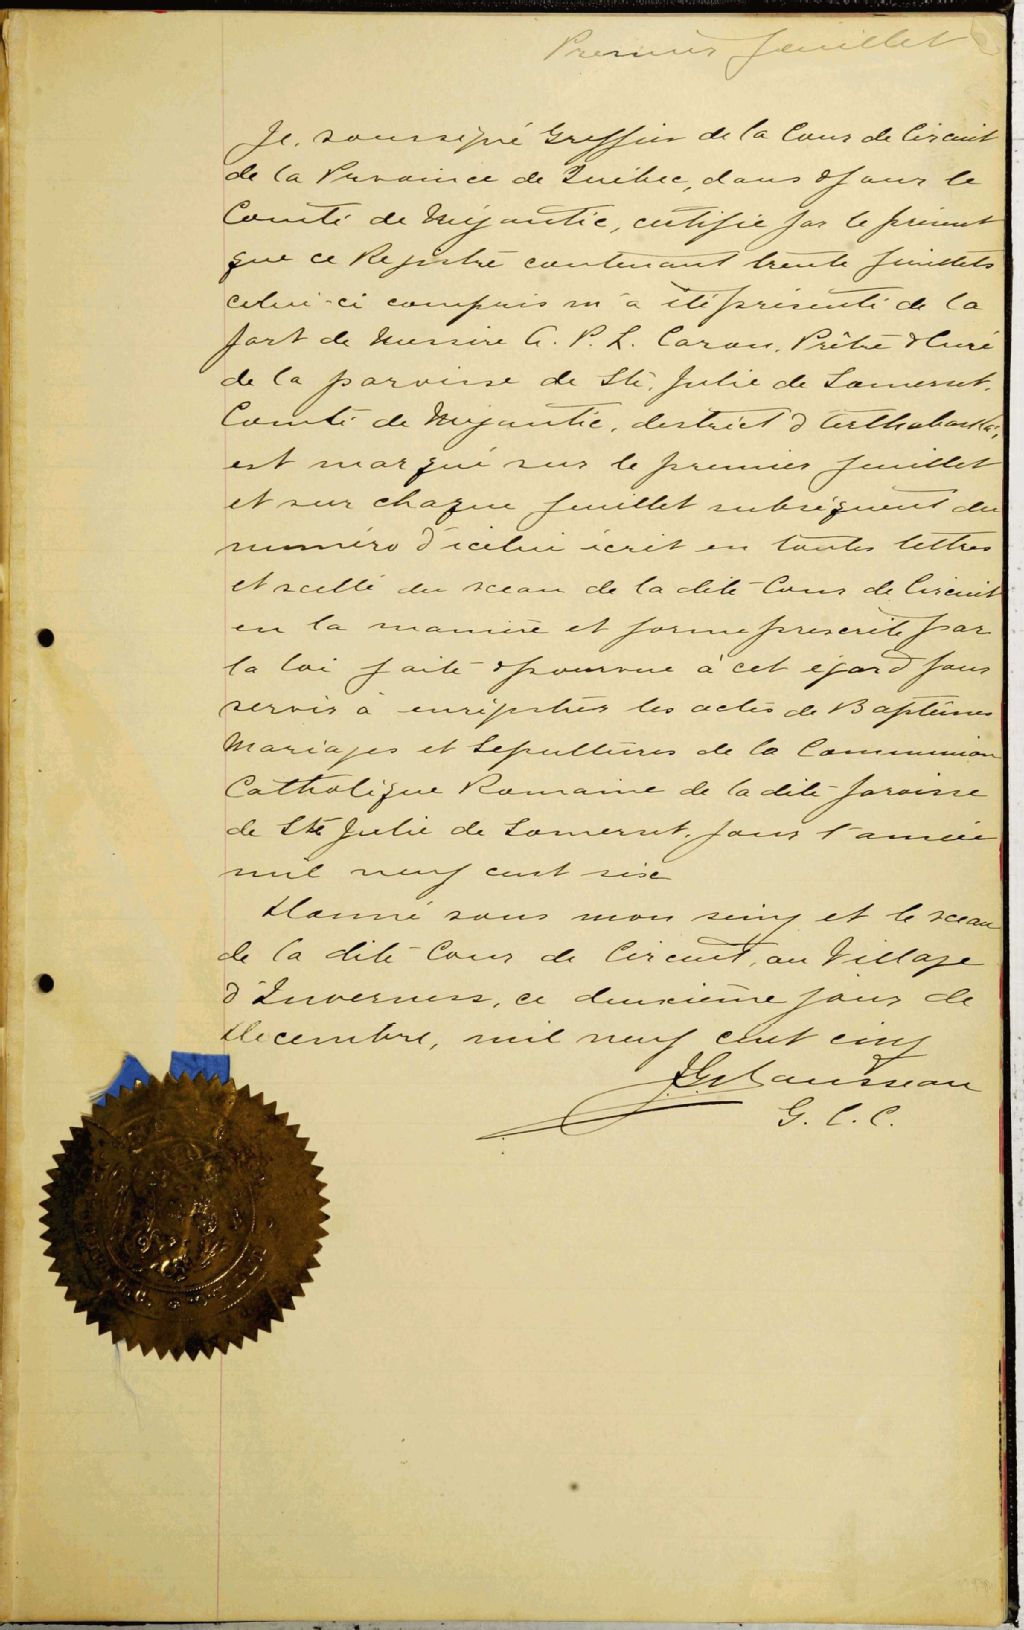 Premier feuillet
Je, soussigné Greffier de la Cour de Circuit
de la Province de Québec, dans & pour le
Comté de Mégantic, certifie par le présent
que ce Registre contenant trente feuillets
celui-ci compris m'a été présenté de la
part de Messire A. P. L. Caron, Prêtre & Curé
de la paroisse de Ste. Julie de Somerset,
Comté de Mégantic, district d'Arthabaska,
est marqué sur le premier feuillet
et sur chaque feuillet subséquent du
numéro d'icelui écrit en toutes lettres
et scellé du sceau de la dite Cour de Circuit
en la manière et forme prescrite par
la loi faite & pourvue à cet égard pour
servir à enrégistrer les actes de Baptêmes
Mariages et Sepultures de la Communion
Catholique Romaine de la dite paroisse
de Ste Julie de Somerset, pour l'année
mil neuf cent six
Donné sous mon seing et le sceau
de la dite Cour de Circuit, au Village
d'Inverness, ce deuxième jour de
Décembre, mil neuf cent cinq
G. C. C.